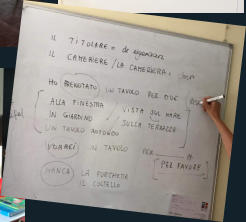 IL TITOLARE =
IL CAMERIERE / LA CAMERIERA,
HO PRENOTATO UN TAVOLO PER DUE
ALLA FINESTRA
VISTA SUL MARE
IN GIARDINO
SULLA TERRAZZA
UN TAVOLO ROTONDO
VORREI UN TAVOLO PER
PER FAVORE
MANCA LA FORCHETTA
IL COLTELLO